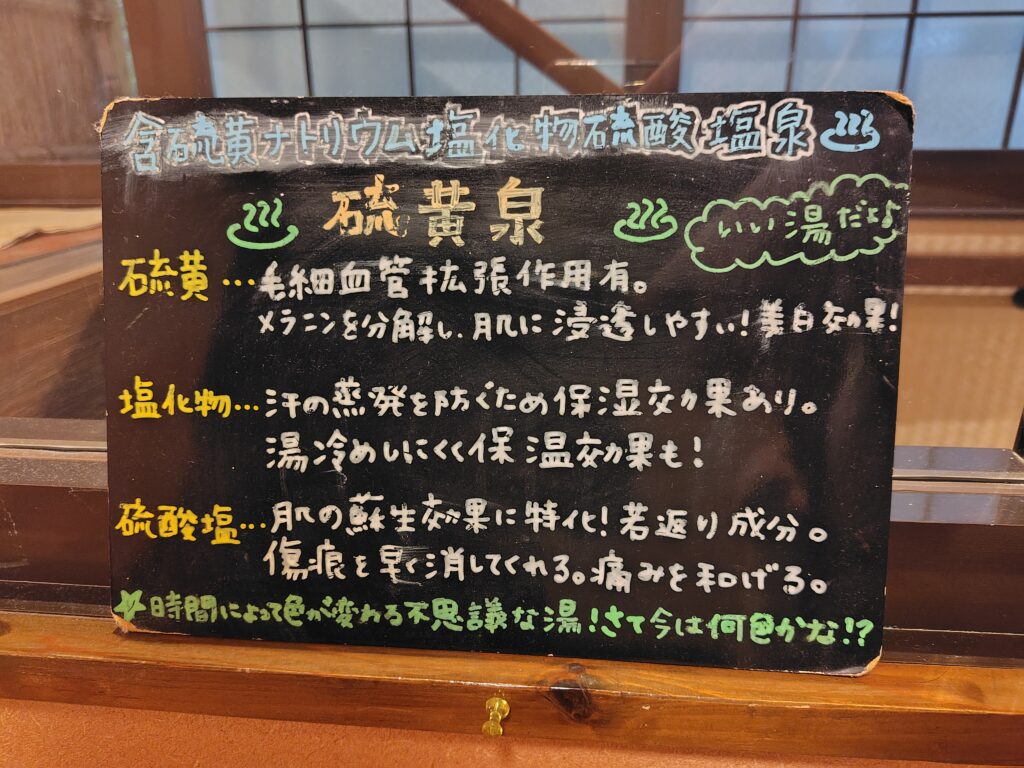 含硫黄ナトリウム塩化物硫酸塩泉♨
♨ 硫黄泉 ♨
いい湯だよ♪
硫黄…毛細血管拡張作用有。
メラニンを分解し、肌に浸透しやすい!美白効果!
塩化物…汗の蒸発を防ぐため保湿効果あり。
湯冷めしにくく保温効果も!
硫酸塩…肌の蘇生効果に特化!若返り成分。
傷痕を早く消してくれる。痛みを和げる。
☆時間によって色が変わる不思議な湯!さて今は何色かな!?